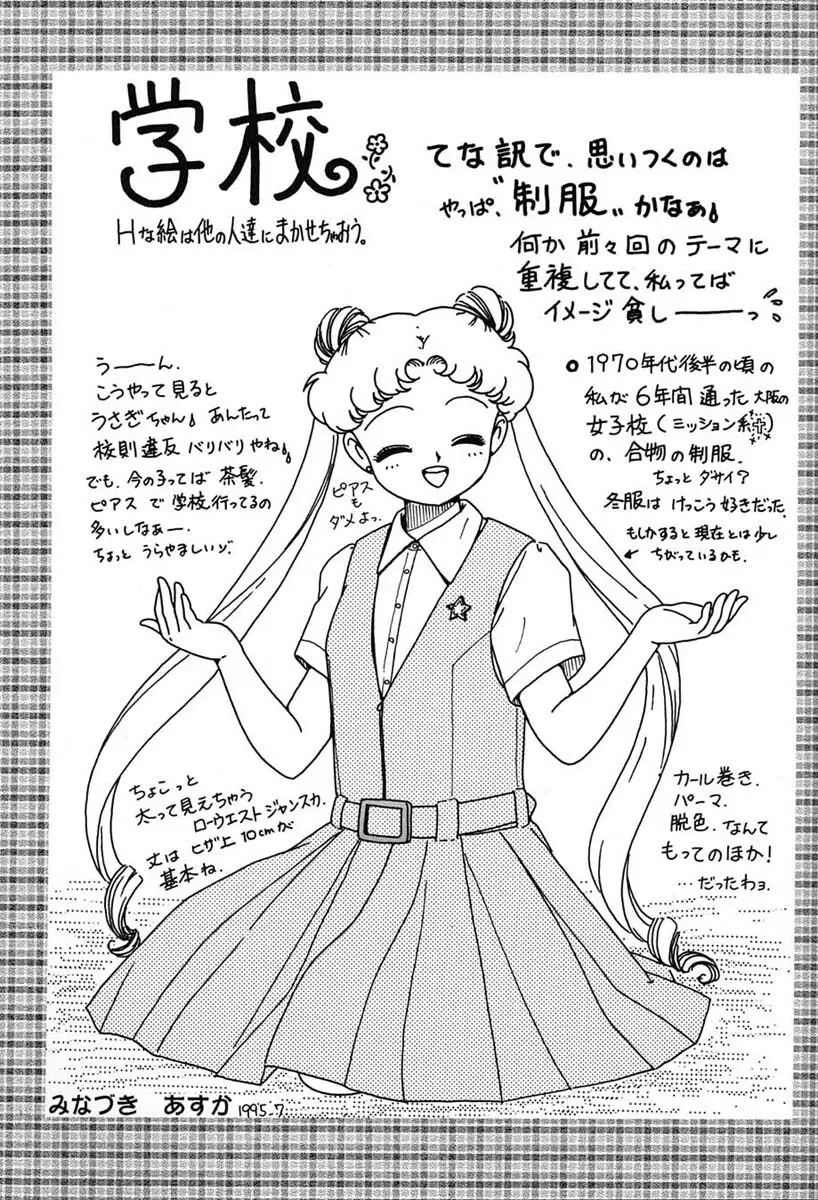 学校
Hな絵は他の人達にまかせちゃおう。
てな訳で、思いつくのは
やっぱ、〝制服〟かなぁ
何か前々回のテーマに
重複してて、私ってば
イメージ貧しーーっ
1970年代後半の頃の
私が6年間通った大阪の
女子校(ミッション系)
の、合物の制服。
ちょっとダサイ?
冬服はけっこう好きだった。
もしかすると現在とは少し
ちがっているかも。
うーーん。
こうやって見ると
うさぎちゃん あんたって
校則違反バリバリやね
でも、今の子ってば茶髪、
ピアスで学校行ってるの
多いしなぁー
ちょっとうらやましいゾ。
ピアス
も
ダメよっ
ちょこっと
太って見えちゃう
ローウエストジャンスカ。
丈はヒザ上10cmが
基本ね。
カール巻き、
パーマ、
脱色、なんて
もってのほか!
…だったわョ。
みなづき あすか 1995.7